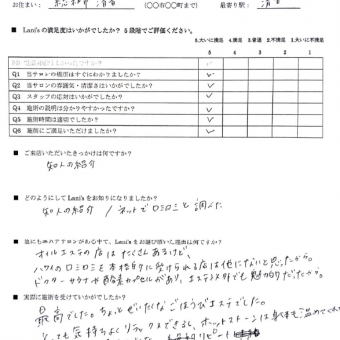 お住まい：
(〇〇市〇〇町まで)
最寄り駅：
■ Lani'sの満足度はいかがでしたか？ 5段階でご評価ください。
5.大いに満足 4.満足 3.普通 2.不満足 1.大いに不満足
5 4 3 2 1
Q1 当サロンの場所はすぐにわかりましたか？ ✓
Q2 当サロンの雰囲気・清潔さはいかがでしたか？ ✓
Q3 スタッフの応対はいかがでしたか？ ✓
Q4 施術の説明は分かりやすかったですか？ ✓
Q5 施術時間は適切でしたか？ ✓
Q6 施術にご満足いただけましたか？ ✓
■ ご来店いただいたきっかけは何ですか？
知人の紹介
■ どのようにしてLani'sをお知りになりましたか？
知人の紹介 / ネットでロミロミと調べた
■ 他にもエステサロンがある中で、Lani'sをお選び頂いた理由は何ですか？
オイルエステの店はたくさんあるけど、
ハワイのロミロミを本格的に受けられる店は他にないと思ったから。
ドクターサウナや酵素カプセルがあり、エステ以外でも魅力的だったから。
■ 実際に施術を受けていかがでしたか？
最高でした。ちょっとぜいたくなごほうびエステでした。
とっても気持ちよくリラックスできるし、ホットストーンは身体も温めてくれ
リピート